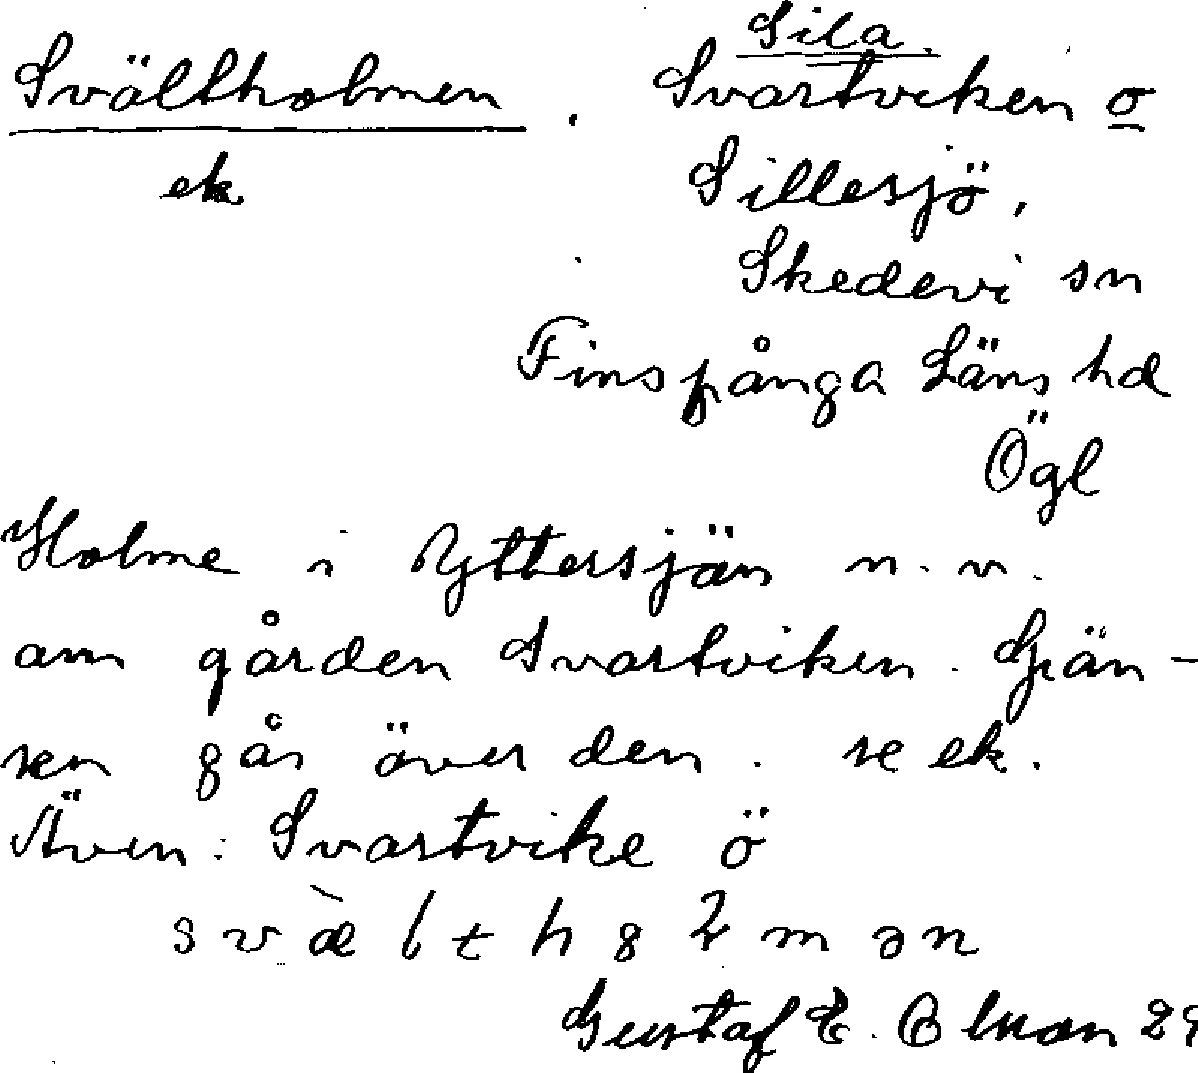 Sila.
Svältholmen . Svartviken o
ek Sillesjö,
Skedevi sn
Finspånga Läns hd
Ögl
Holme i Yttersjön n.v.
om gården Svartviken. Grän-
sen går över den. se ek.
Även: Svartvike ö
Gustaf E. 29